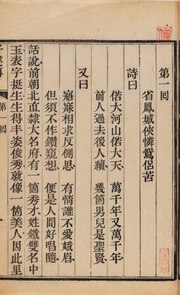 第一囘
省鳳城俠憐鴛侶苦
詩曰
偌大河山偌大天 萬千年又萬千年
前人過去後人續 幾箇男兒是聖賢
又曰
寤寐相求反側思 有情誰不愛蛾眉
但須不作鑽窺想 便是人間好唱隨
話說前朝北直隸大名府有一箇秀才姓鐵雙名中
玉表字挺生生得丰姿俊秀就像一箇美人因此里
第一囘